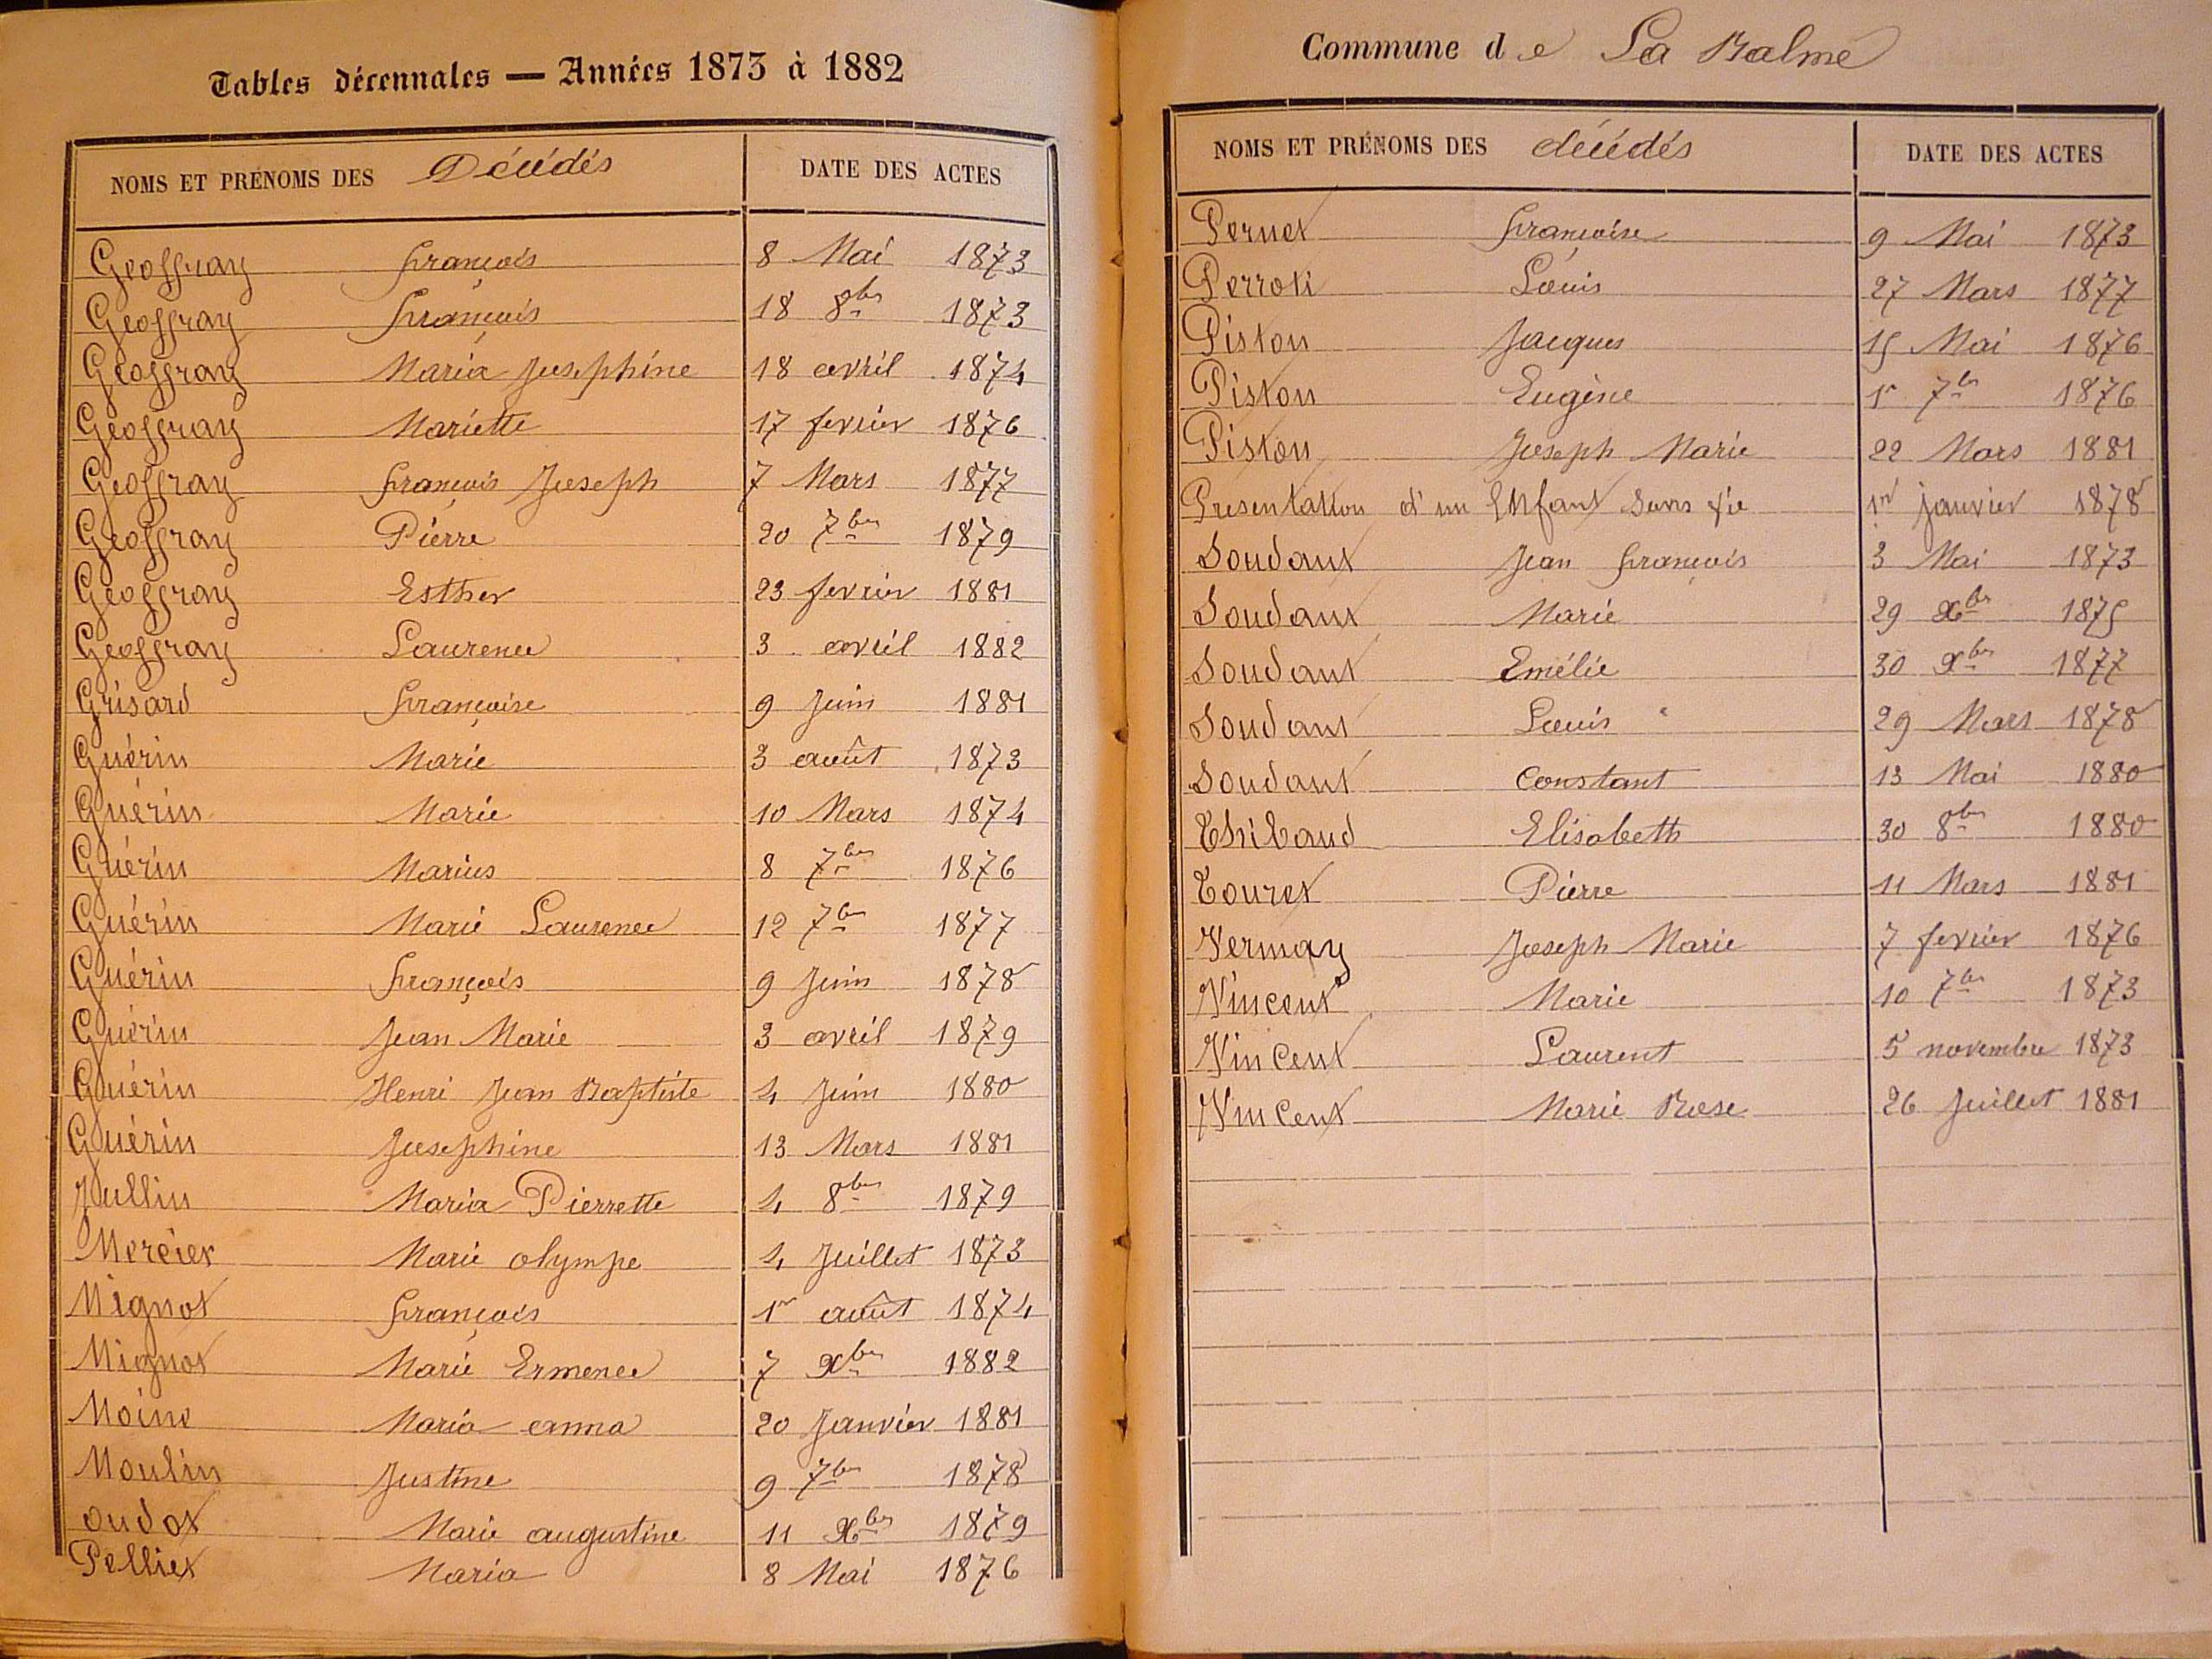 Tables décennales — Années 1873 à 1882
NOMS ET PRÉNOMS DES Décédés DATE DES ACTES
Geoffray François 8 Mai 1873
Geoffray François 18 8bre 1873
Geoffray Maria Josephine 18 avril 1874
Geoffray Mariette 17 fevrier 1876
Geoffray François Joseph 7 Mars 1877
Geoffray Pierre 20 7bre 1879
Geoffray Esther 23 fevrier 1881
Geoffray Laurence 3 avril 1882
Grisard Françoise 9 Juin 1881
Guérin Marie 3 août 1873
Guérin Marie 10 Mars 1874
Guérin Marius 8 7bre 1876
Guérin Marie Laurence 12 7bre 1877
Guérin François 9 Juin 1878
Guérin Jean Marie 3 avril 1879
Guérin Henri Jean Baptiste 4 Juin 1880
Guérin Josephine 13 Mars 1881
Jullin Maria Pierrette 4 8bre 1879
Mercier Marie olympe 4 Juillet 1873
Mignot François 1r août 1874
Mignot Marie Ermence 7 Xbre 1882
Moine Maria anna 20 Janvier 1881
Moulin Justine 9 7bre 1878
oudot Marie augustine 11 Xbre 1879
Pelliet Maria 8 Mai 1876
Commune de La Balme
NOMS ET PRÉNOMS DES décédés DATE DES ACTES
Pernet Françoise 9 Mai 1873
Perroti Louis 27 Mars 1877
Piston Jacques 15 Mai 1876
Piston Eugène 1r 7bre 1876
Piston Joseph Marie 22 Mars 1881
Presentation d'un Enfant sans vie 1er janvier 1878
Soudant Jean François 3 Mai 1873
Soudant Marie 29 Xbre 1875
Soudant Emélie 30 Xbre 1877
Soudant Louis 29 Mars 1878
Soudant Constant 13 Mai 1880
Thibaud Elisabeth 30 8bre 1880
Touret Pierre 11 Mars 1881
Vermay Joseph Marie 7 fevrier 1876
Vincent Marie 10 7bre 1873
Vincent Laurent 5 novembre 1873
Vincent Marie Rose 26 Juillet 1881